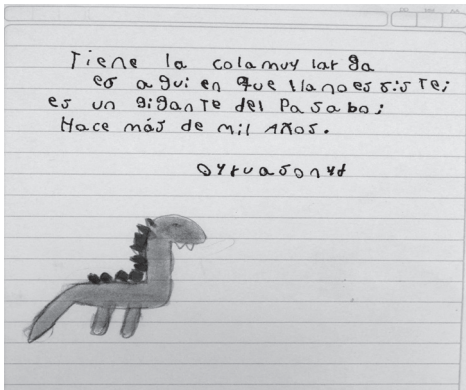 Tiene la colamuy larga
es aguien que llanoessiste;
es un gigante del Pasabo;
Hace más de mil Años.